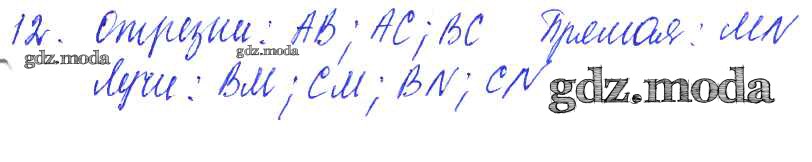 12. Отрезки: AB; AC; BC Прямая: MN
gdz.moda gdz.moda
Лучи: BM; CM; BN; CN gdz.moda